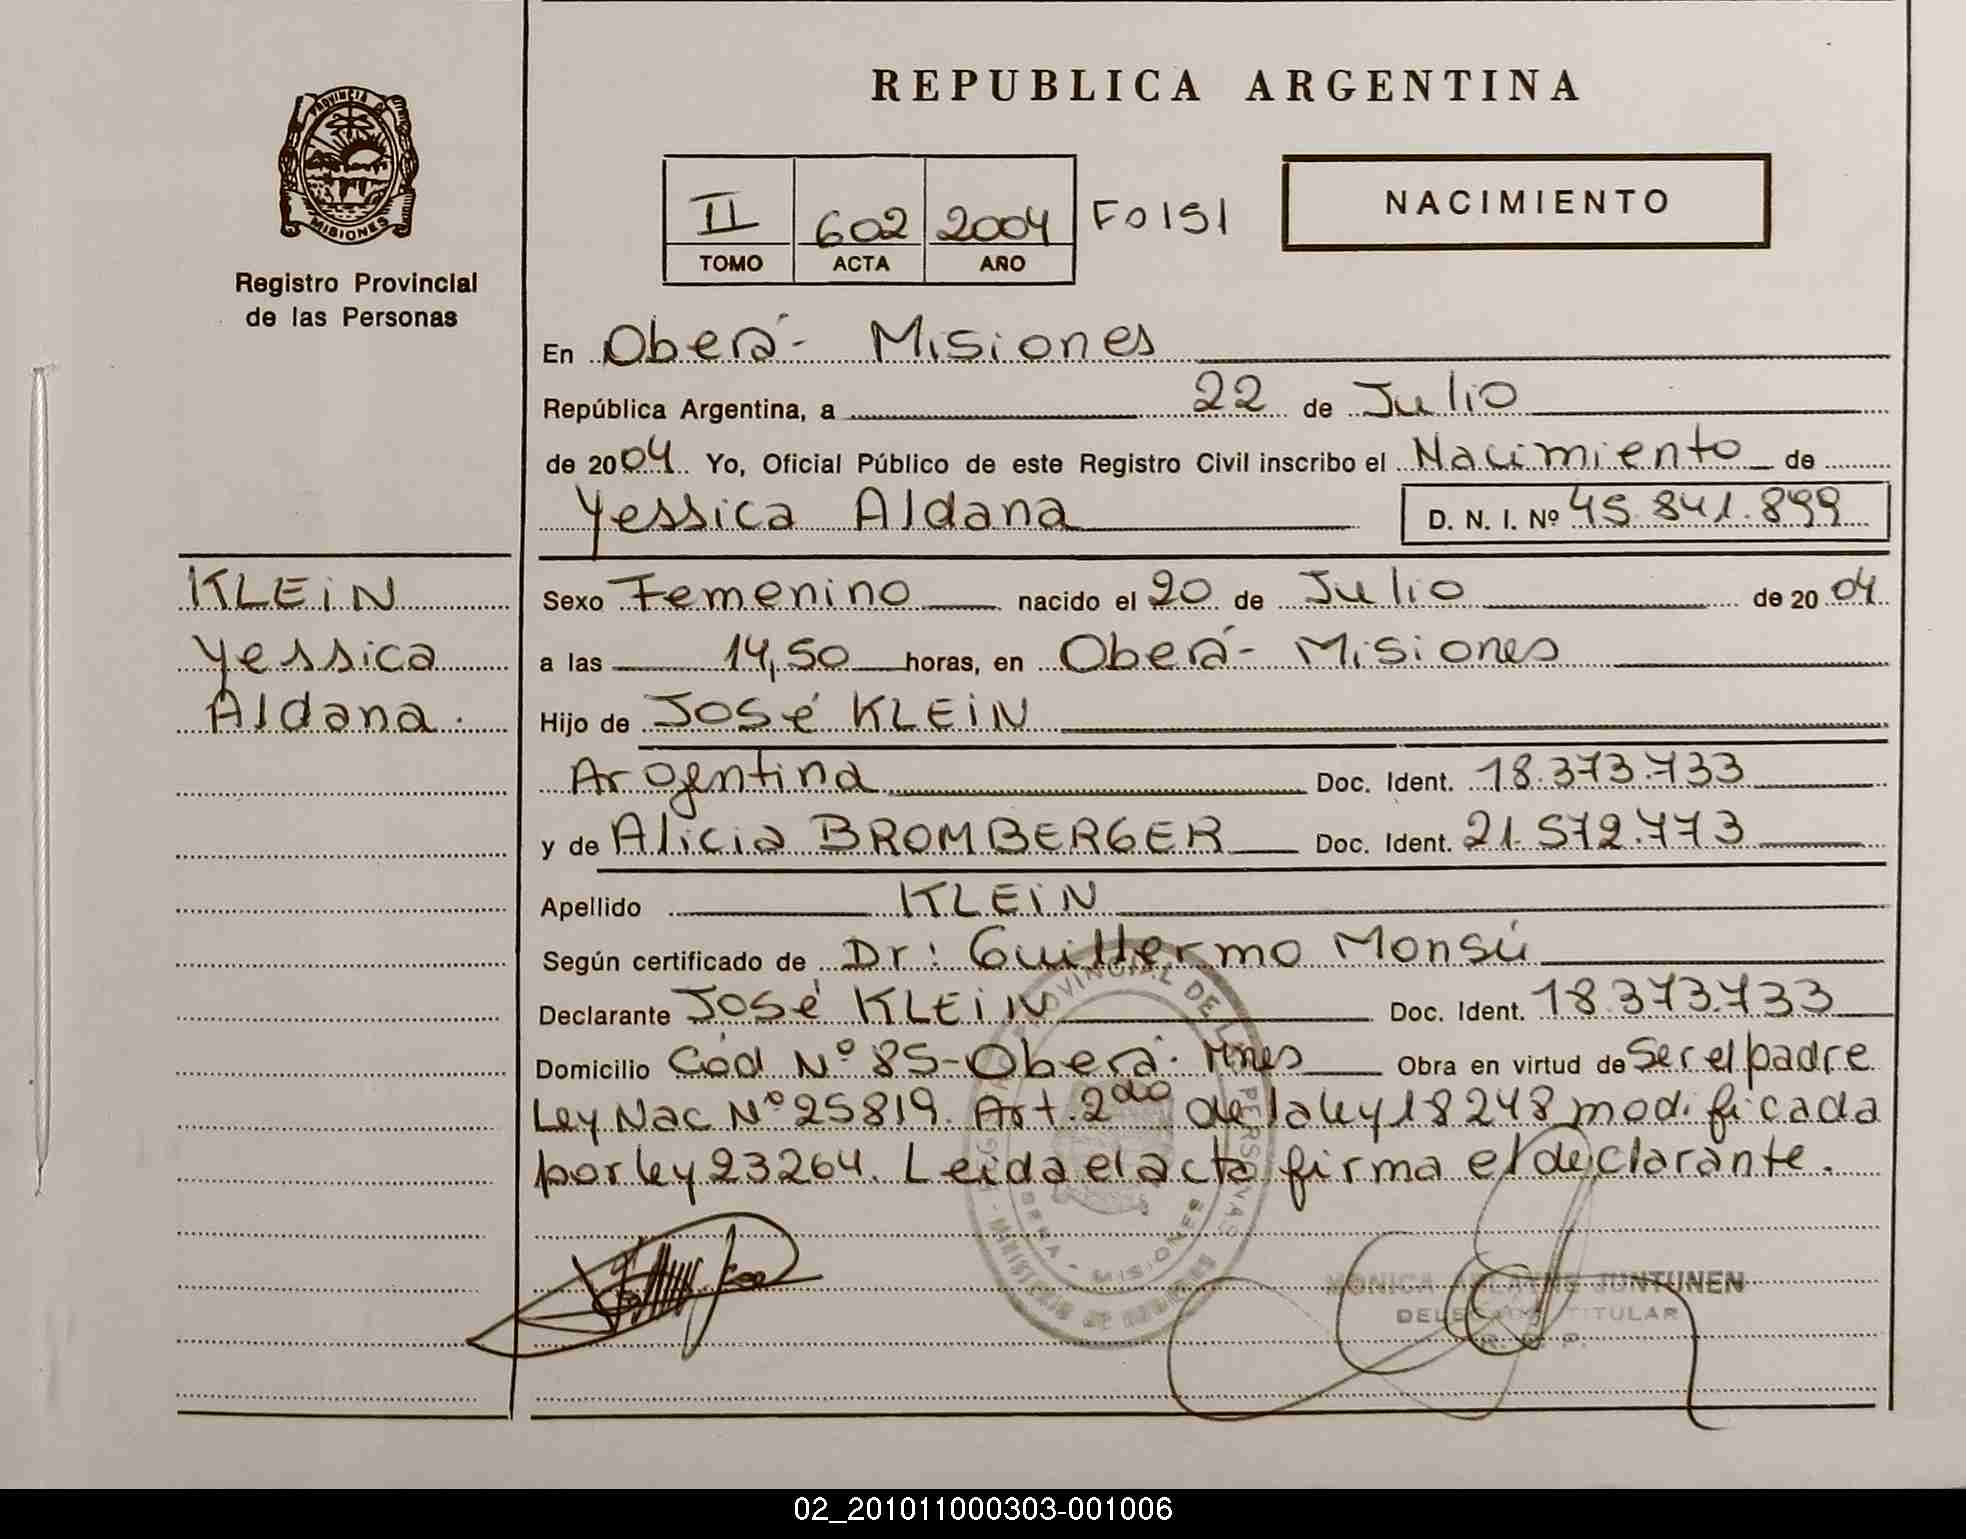 REPUBLICA ARGENTINA
PROVINCIA DE
MISIONES
Registro Provincial
de las Personas
II 602 2004 Fo 151
TOMO ACTA AÑO
NACIMIENTO
En Oberá - Misiones
República Argentina, a 22 de Julio
de 2004 Yo, Oficial Público de este Registro Civil inscribo el Nacimiento de
Yessica Aldana D. N. I. Nº 45.841.899
KLEiN
Yessica
Aldana.
Sexo Femenino nacido el 20 de Julio de 2004
a las 14,50 horas, en Oberá - Misiones
Hijo de José KLEiN
Argentina Doc. Ident. 18.373.733
y de Alicia BROMBERGER Doc. Ident. 21.572.773
Apellido KLEiN
Según certificado de Dr: Guillermo Monsú
Declarante José KLEiN Doc. Ident. 18.373.733
Domicilio Cód Nº 85 - Oberá - Mnes Obra en virtud de Ser el padre
Ley Nac Nº 25819. Art. 2do de la ley 18248 modificada
por ley 23264. Leida el acta firma el declarante.
PROVINCIAL DE LAS PERSONAS
OBERA - MISIONES
MONICA JUNTUNEN
DELEGADA TITULAR
R. P. P.
02_201011000303-001006